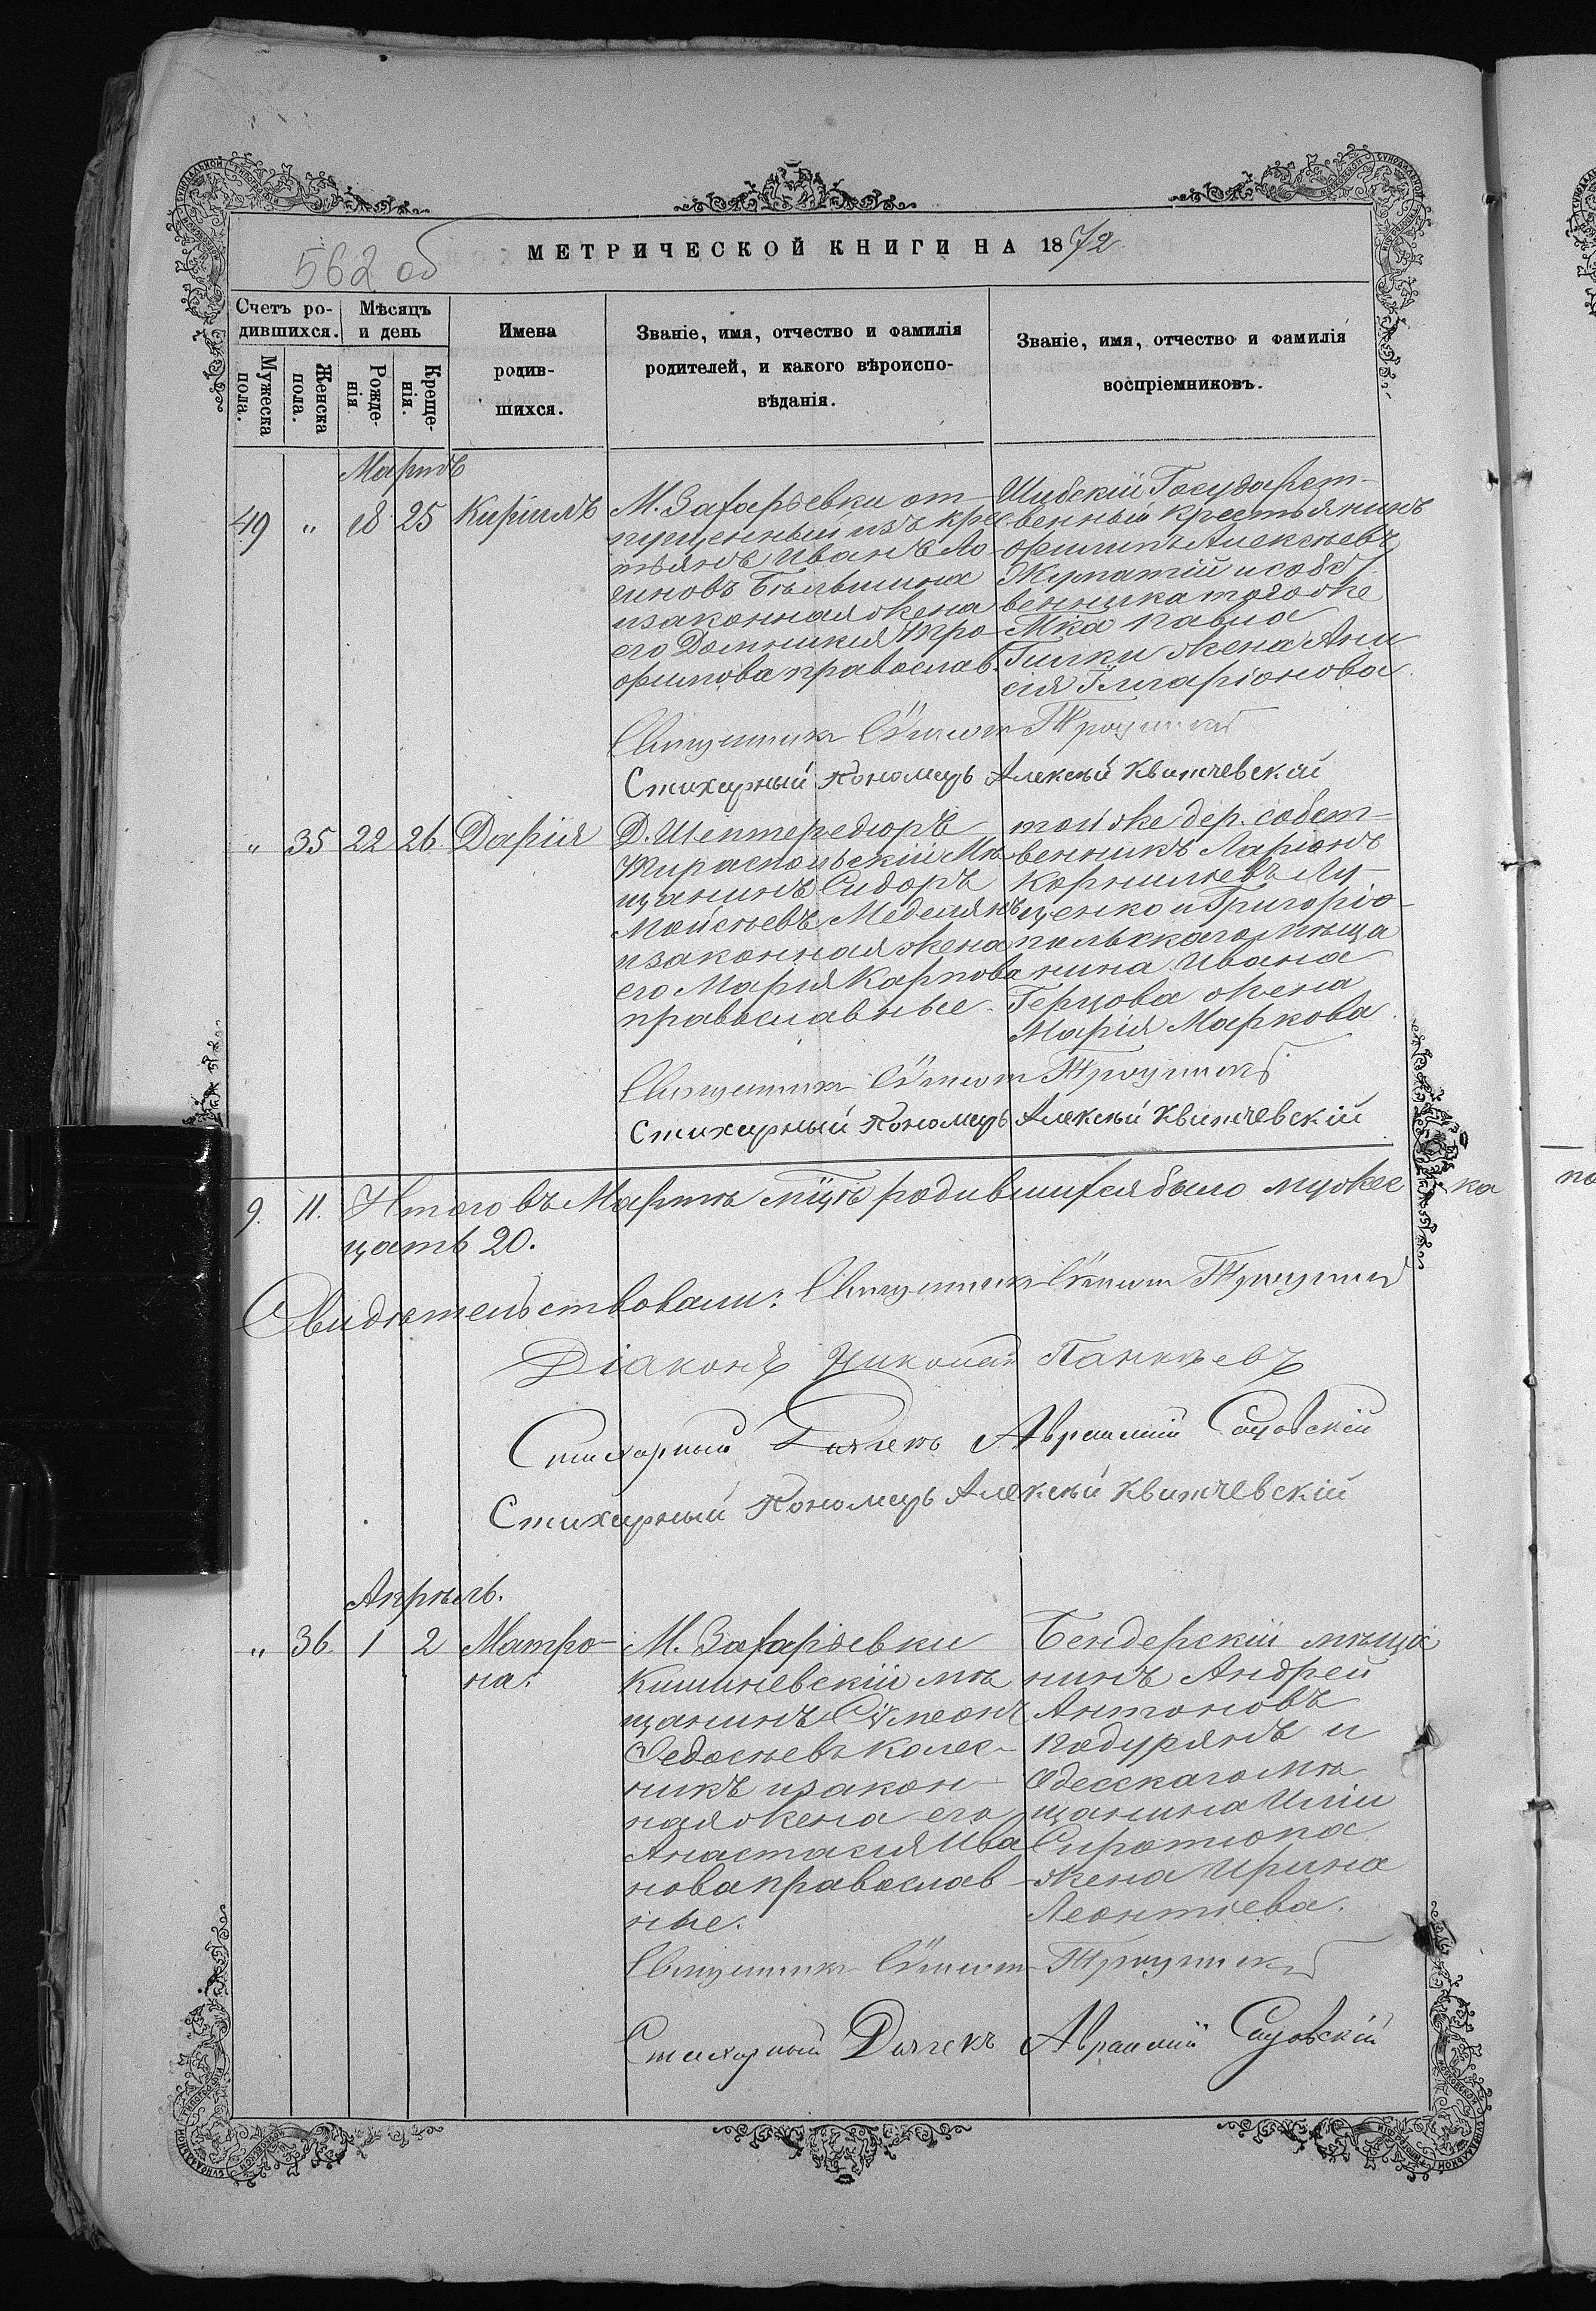 562 об
МЕТРИЧЕСКОЙ КНИГИ НА 1872
Счетъ ро-
дившихся.
Мѣсяцъ
и день
Мужеска
пола.
Женска
пола.
Рожде-
нія
Креще-
нія.
Имена
родив-
шихся.
Званіе, имя, отчество и фамилія
родителей, и какого вѣроиспо-
вѣданія.
Званіе, имя, отчество и фамилія
воспріемниковъ.
Мартъ
49 " 18 25 Кирилъ
М. Захарьевки от-
пущенный изъ кре
тьянъ Иванъ Ло-
гиновъ
и законная жена
его Домникия Тро-
фимова православ.
Государст-
венный крестьянинъ
Филипъ Алексѣевъ
и собст
венника того же
М-ка Павла
жена Ани
сія Иларіонова
Священникъ Троицкій
Стихарный Пономарь Алексѣй Квитчевскій
" 35 22 26. Дарія
Д. Шептередюръ
Тираспольскій Мѣ
щанинъ Сидоръ
Моисѣевъ Меделянъ
и законная жена
его Марія Карпова
православные.
той же дер. собст-
венникъ Ларіонъ
Корнилѣевъ Лу-
ценко и Григоріо-
польскаго мѣща
нина Ивана
Герцова жена
Марія Маркова.
Священникъ Троицкій
Стихарный Пономарь Алексѣй Квитчевскій
9. 11. Итого въ Мартѣ м-цѣ родившихся было мужес ка
цать 20.
Свидѣтельствовали: Священникъ Троицкій
Діаконъ Николай Панкѣевъ
Стихарный Дячекъ Аврамій
Стихарный Пономарь Алексѣй Квитчевскій
Апрѣль.
" 36. 1 2 Матро-
на.
М. Захарьевки
Кишиневскій мѣ
щанинъ Сѵмеонъ
Федосѣевъ Колес-
никъ и закон-
ная жена его
Анастасія Ива
нова православ-
ные.
Бендерскій мѣща
нинъ Андрей
Антоновъ
Подурянъ и
Одесскаго мѣ
щанина Иліи
Сиротюка
жена Ирина
Леонтіева.
Священникъ Троицкій
Стихарный Дячекъ Аврамій